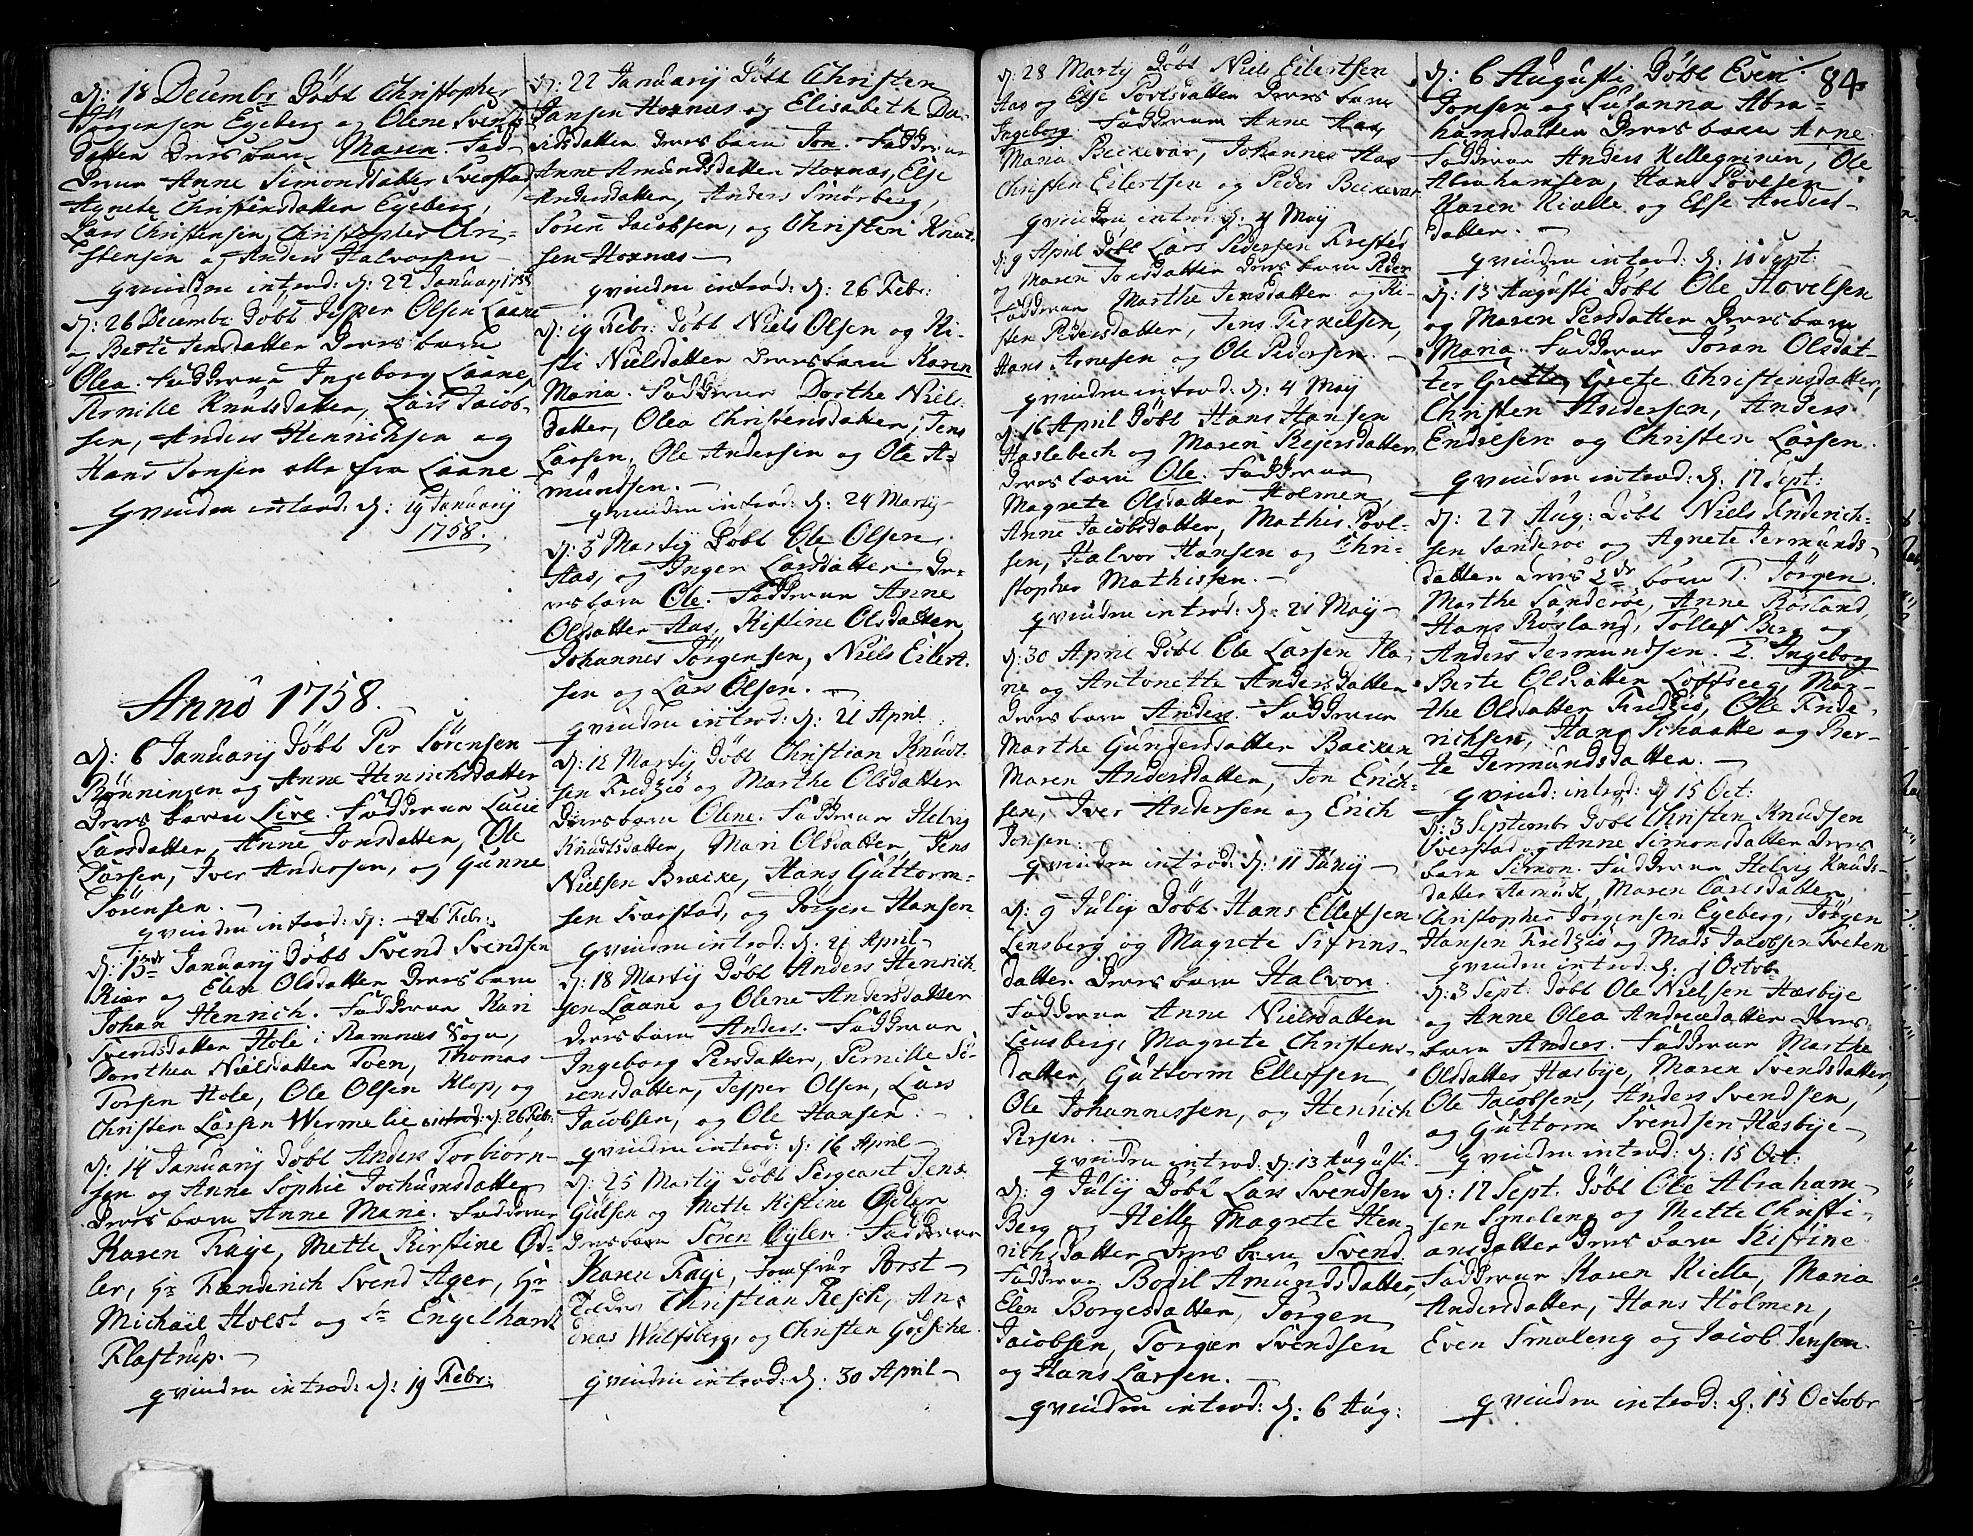 d: 18 Decembr Döbt Christopher
Jörgensen Egeberg og Olene Svends
datter deres barn Maren. Fad-
derne Anne Simonsdatter Sverstad
Agnete Christensdatter Egeberg,
Lars Christensen, Christopher Chri-
stensen og Anders Halvorsen
qvinden introd: d: 22 Januarij 1758
d: 26 Decembr Döbt Jesper Olsen Laane
og Berte Jensdatter deres barn
Olea. Fadderne Ingeborg Laane,
Pernille Knudsdatter, Lars Jacob-
sen, Anders Henrichsen og
Hans Jonsen alle fra Laane
qvinden introd: d: 19 Januarij
1758.
Anno 1758.
d: 6 Januarij Döbt Per Sörensen
Rönningen og Anne Henrichsdatter
deres barn Live. Fadderne Lucie
Larsdatter, Anne Jonsdatter, Ole
Larsen, Iver Andersen, og Gunne
Sörensen.
qvinden introd: d: 26 Febr:
d: 13de Januarij Döbt Svend Svendsen
Kiær og Elen Olsdatter deres barn
Johan Henrich. Fadderne Kari
Svendsdatter Hole i Ramnæs Sogn,
Dorthea Nielsdatter Toen, Thomas
Torsen Hole, Ole Olsen Klop, og
Christen Larsen Wermelie introd: d: 26 Febr:
d: 14 Januarij Döbt Anders Torbiörn-
sen og Anne Sophie Jochumsdatter
deres barn Anne Marie. Fadderne
Karen Faye, Mette Kirstine Ød-
ler, Hr Fænderich Svend Ager, Hr
Michäil Holst og Sr Engelhardt
Flastrup.
qvinden introd: d: 19 Febr:
d: 22 Januarij Döbt Christen
Hansen Hornæs og Elisabeth Da-
vidsdatter deres barn Jon. Fadderne
Anne Amundsdatter Hoxnæs, Else
Andersdatter, Anders Smörberg,
Sören Jacobsen, og Christen Knut-
sen Hoxnæs
qvinden introd: d: 26 Febr:
d: 19 Febr: Döbt Niels Olsen og Ki-
sti Nielsdatter deres barn Karen
Maria. Fadderne Dorthe Niels-
datter, Olea Christensdatter, Jens
Larsen, Ole Andersen og Ole A-
mundsen.
qvinden introd: d: 24 Martij
d: 5 Martij Döbt Ole Olsen
Aas, og Inger Larsdatter De-
res barn Ole. Fadderne Anne
Olsdatter Aas, Kistine Olsdatter,
Johannes Jörgensen, Niels Eilert-
sen og Lars Olsen.
qvinden introd: d: 21 April
d: 12 Martij Döbt Christian Knudt-
sen Fredsiö og Marthe Olsdatter
deres barn Olene. Fadderne Helvig
Knudtsdatter, Mari Olsdatter, Jens
Nielsen Bræcke, Hans Guttorm-
sen Svarstad, og Jörgen Hansen
qvinden introd: d: 21 April
d: 18 Martij Döbt Anders Henrich-
sen Laane og Olene Andersdatter
deres barn Anders. Fadderne
Ingeborg Persdatter, Pernille Sö-
rensdatter, Jesper Olsen, Lars
Jacobsen, og Ole Hansen.
qvinden introd: d: 16 April
d: 25 Martij Döbt Sergeant Jens
Giilsen og Mette Kistine Ødler
deres barn Sören Øylen. Fadderne
Karen Faye, Jomfrue Porst
Christian Resch, An-
dreas Wulfsberg, og Christen Godsche
qvinden introd: d: 30 April
d: 28 Martij Döbt Niels Eilertsen
Aas og Else Povlsdatter deres barn
Ingeborg. Fadderne Anne Aas,
Maria Beckevar, Johannes Aas
Christen Eilertsen og Peder Beckevar
qvinden introd: d: 4 Maij
d: 9 April Döbt Lars Pedersen Frested
og Maren Torisdatter deres barn Peder
Fadderne Marthe Jensdatter og Ki-
sten Pedersdatter, Jens Terkelsen,
Hans Arnesen og Ole Pedersen.
qvinden introd: d: 4 Maij
d: 16 April Döbt Hans Hansen
Haslebech og Maren Rejersdatter
deres barn Ole. Fadderne
Magrete Olsdatter Holmen,
Anne Jacobsdatter, Mathis Povl-
sen, Halvor Hansen og Chri-
stopher Mathissen.
qvinden introd: d: 21 Maij
d: 30 April Döbt Ole Larsen Ha-
ne og Antonette Andersdatter
deres barn Anders. Fadderne
Marthe Gundersdatter Backen
Maren Andersdatter, Jon Erich-
sen, Iver Andersen og Erich
Jonsen.
qvinden introd: d: 11 Junij
d: 9 Julij Döbt Hans Ellefsen
Lensberg og Magrete Sifrins-
datter deres barn Halvor.
Fadderne Anne Nielsdatter
Lensberg, Magrete Christens-
datter, Guttorm Ellefsen,
Ole Johannessen, og Henrich
Persen.
qvinden introd: d: 13 Augusti
d: 9 Julij Döbt Lars Svendsen
Berg og Helle Magrete Hen-
richsdatter deres barn Svend
Fadderne Bodil Amundsdatter,
Elen Borgesdatter, Jörgen
Jacobsen, Torger Svendsen
og Hans Larsen.
qvinden introd: d: 6 Aug:
84
d: 6 Augusti Döbt Even
Jonsen og Susanna Abra-
hamsdatter deres barn Arne.
Fadderne Anders Hellegrinen, Ole
Abrahamsen, Hans Povelsen
Karen Kielle og Else Anders-
datter.
qvinden introd: d: 10 Sept:
d: 13 Augusti Döbt Ole Hovelsen
og Maren Persdatter deres barn
Maria. Fadderne Joran Olsdat-
ter Grette, Grete Christensdatter,
Christen Andersen, Anders
Endresen og Christen Larsen.
qvinden introd: d: 17 Sept:
d: 27 Aug: Döbt Niels Enderich-
sen Sanderöe og Agnete Jermunds-
datter deres 2de börn 1. Jörgen.
Marthe Sanderöe, Anne Rösland,
Hans Rosland, Tollef Berg og
Anders Jermundsen. 2. Ingeborg
Berte Olsdatter Löffseeg, Mar-
the Olsdatter Fredsiö, Ole Ende-
richsen, Hans Schaatte og Ber-
te Jermundsdatter.
qvind: introd: d: 15 Oct:
d: 3 Septembr Döbt Christen Knudsen
Sverstad og Anne Simonsdatter deres
barn Simon. Fadderne Helvig Knuds-
datter Aamodt, Maren Carlsdatter,
Christopher Jörgensen Egeberg, Jörgen
Hansen Fredsiö og Mads Jacobsen Tveten
qvinden introd: d: 1 Octob
d: 3 Sept: Döbt Ole Nielsen Hæsbye
og Anne Olea Andreædatter deres
barn Anders. Fadderne Marthe
Olsdatter Hæsbye, Maren Svendsdatter,
Ole Jacobsen, Anders Svendsen,
og Guttorm Svendsen Hæsbye
qvinden introd: d: 15 Oct:
d: 17 Sept. Döbt Ole Abraham-
sen Smaleng og Mette Christi-
ansdatter deres barn Kistine
Fadderne Karen Kielle, Maria
Andersdatter, Hans Holmen,
Even Smaleng og Jacob Jensen.
qvinden introd: d: 15 Octobr